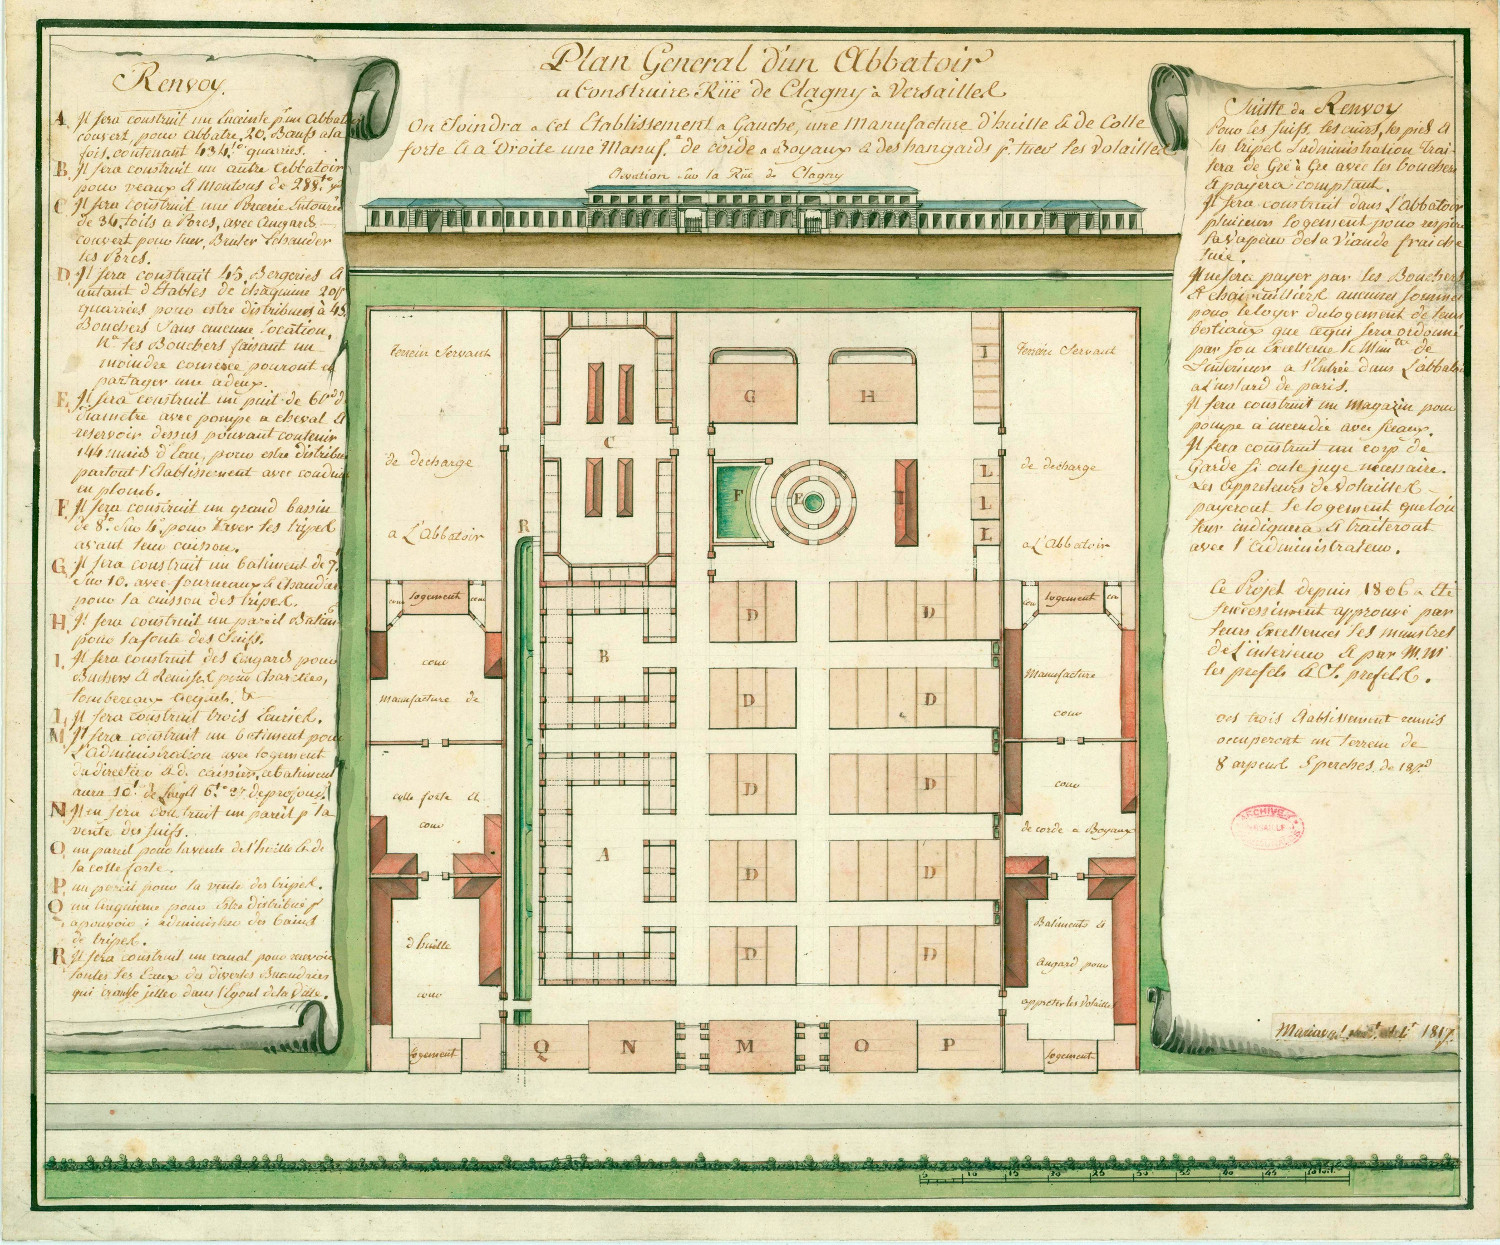 Plan General d'un Abbatoir
a Construire Rüe de Clagny à Versailles
On Joindra a Cet Etablissement a Gauche, une Manufacture d'huille & de Colle
forte & a Droite une Manuf.re de corde a Boyaux & des hangards p.r tuer les Volailles
Elevation sur la Rüe de Clagny
Renvoy.
A. Il sera construit un Enceinte p.r un Abbatoir
couvert, pour abbatre, 20. Bœufs ala
fois, contenant 434.to quarries.
B. Il sera construit un autre Abbatoir
pour veaux & Moutons de 288.to
C. Il sera construit une Porcerie Entourée
de 34. toits a Porcs, avec Angard
couvert pour tuer, Bruler Echauder
les Porcs.
D. Il sera construit 45. Bergeries &
autant d'Etables de chaquune 20
quarriés pour estre distribués à 45
Bouchers sans aucune location,
N.a les Bouchers faisant un
moindre comerce pouront en
partager une a deux.
E. Il sera construit un puit de 6 de
diametre avec pompe a cheval &
reservoir dessus pouvant contenir
144 muids d'Eau, pour estre distribué
partout l'Etablissement avec conduits
en plomb.
F. Il sera construit un grand bassin
de 8.to Sur 4.to pour Laver les tripes
avant leur cuisson.
G. Il sera construit un batiment de 7.to
Sur 10. avec fourneaux & chaudieres
pour la cuisson des tripes.
H. Il sera construit un pareil Batim
pour la fonte des Suifs.
I. Il sera construit des Angards pour
Buchers & Remises pour Charettes,
tombereaux &
L. Il sera construit trois Ecuries.
M. Il sera construit un batiment pour
L'administration avec logement
du directeur & d. caissier, a batiment
aura 10.to de long & 6.to de profond
N. Il en sera construit un pareil p.r la
vente des suifs.
O. un pareil pour la vente de l'huille & de
la colle forte.
P. un pareil pour la vente des tripes.
Q. un cinquieme pour Estre distribué p.r
a pouvoir administrer des bains
de tripes.
R. Il sera construit un canal pour recevoir
toutes les Eaux des diverses Buandries
qui jetter dans l'Egout de la Ville.
Terrein Servant
de decharge
a L'Abbatoir
cour
logement
cour
cour
manufacture de
colle forte &
cour
d'huille
cour
logement
R
C
B
A
G
H
F
E
I
I
L
L
L
D
D
D
D
D
D
D
D
D
D
Q
N
M
O
P
Terrein Servant
de decharge
a L'Abbatoir
logement
Manufacture
cour
cour
de corde a Boyaux
Batiments &
Angard pour
appreter les volailles
logement
Suitte du Renvoy
Pour les Suifs, les cuirs, les pieds &
les tripes L'administration trai-
tera de Gré à Gré avec les bouchers
& payera comptant.
Il sera construit dans L'abbatoir
plusieurs logement pour respirer
la vapeur de la Viande fraiche
tuée.
Il ne sera payer par les Bouchers
& chaircuittiers aucunes sommes
pour le loyer du logement de leurs
bestiaux que ce qui sera ordonné
par son Excellence le Min.tre de
L'interieur a l'Entrée dans L'abbatoir
a L'instard de paris.
Il sera construit un Magazin pour
pompe a incendie avec Seaux.
Il sera construit un corp de
Garde si on le juge nécessaire.
Les Appreteurs de Volailles
payeront le logement que l'on
leur indiquera & traiteront
avec l'Administrateur.
Ce Projet depuis 1806 a été
successivement approuvé par
leurs Excellences les ministres
de L'interieur & par M.M.
les prefets & S. prefets.
ces trois Etablissement reunis
occuperont un terrein de
8 arpents 5 perches de 18p.ds
1817.
ARCHIVES
10 15 20 25 30 35 40 45